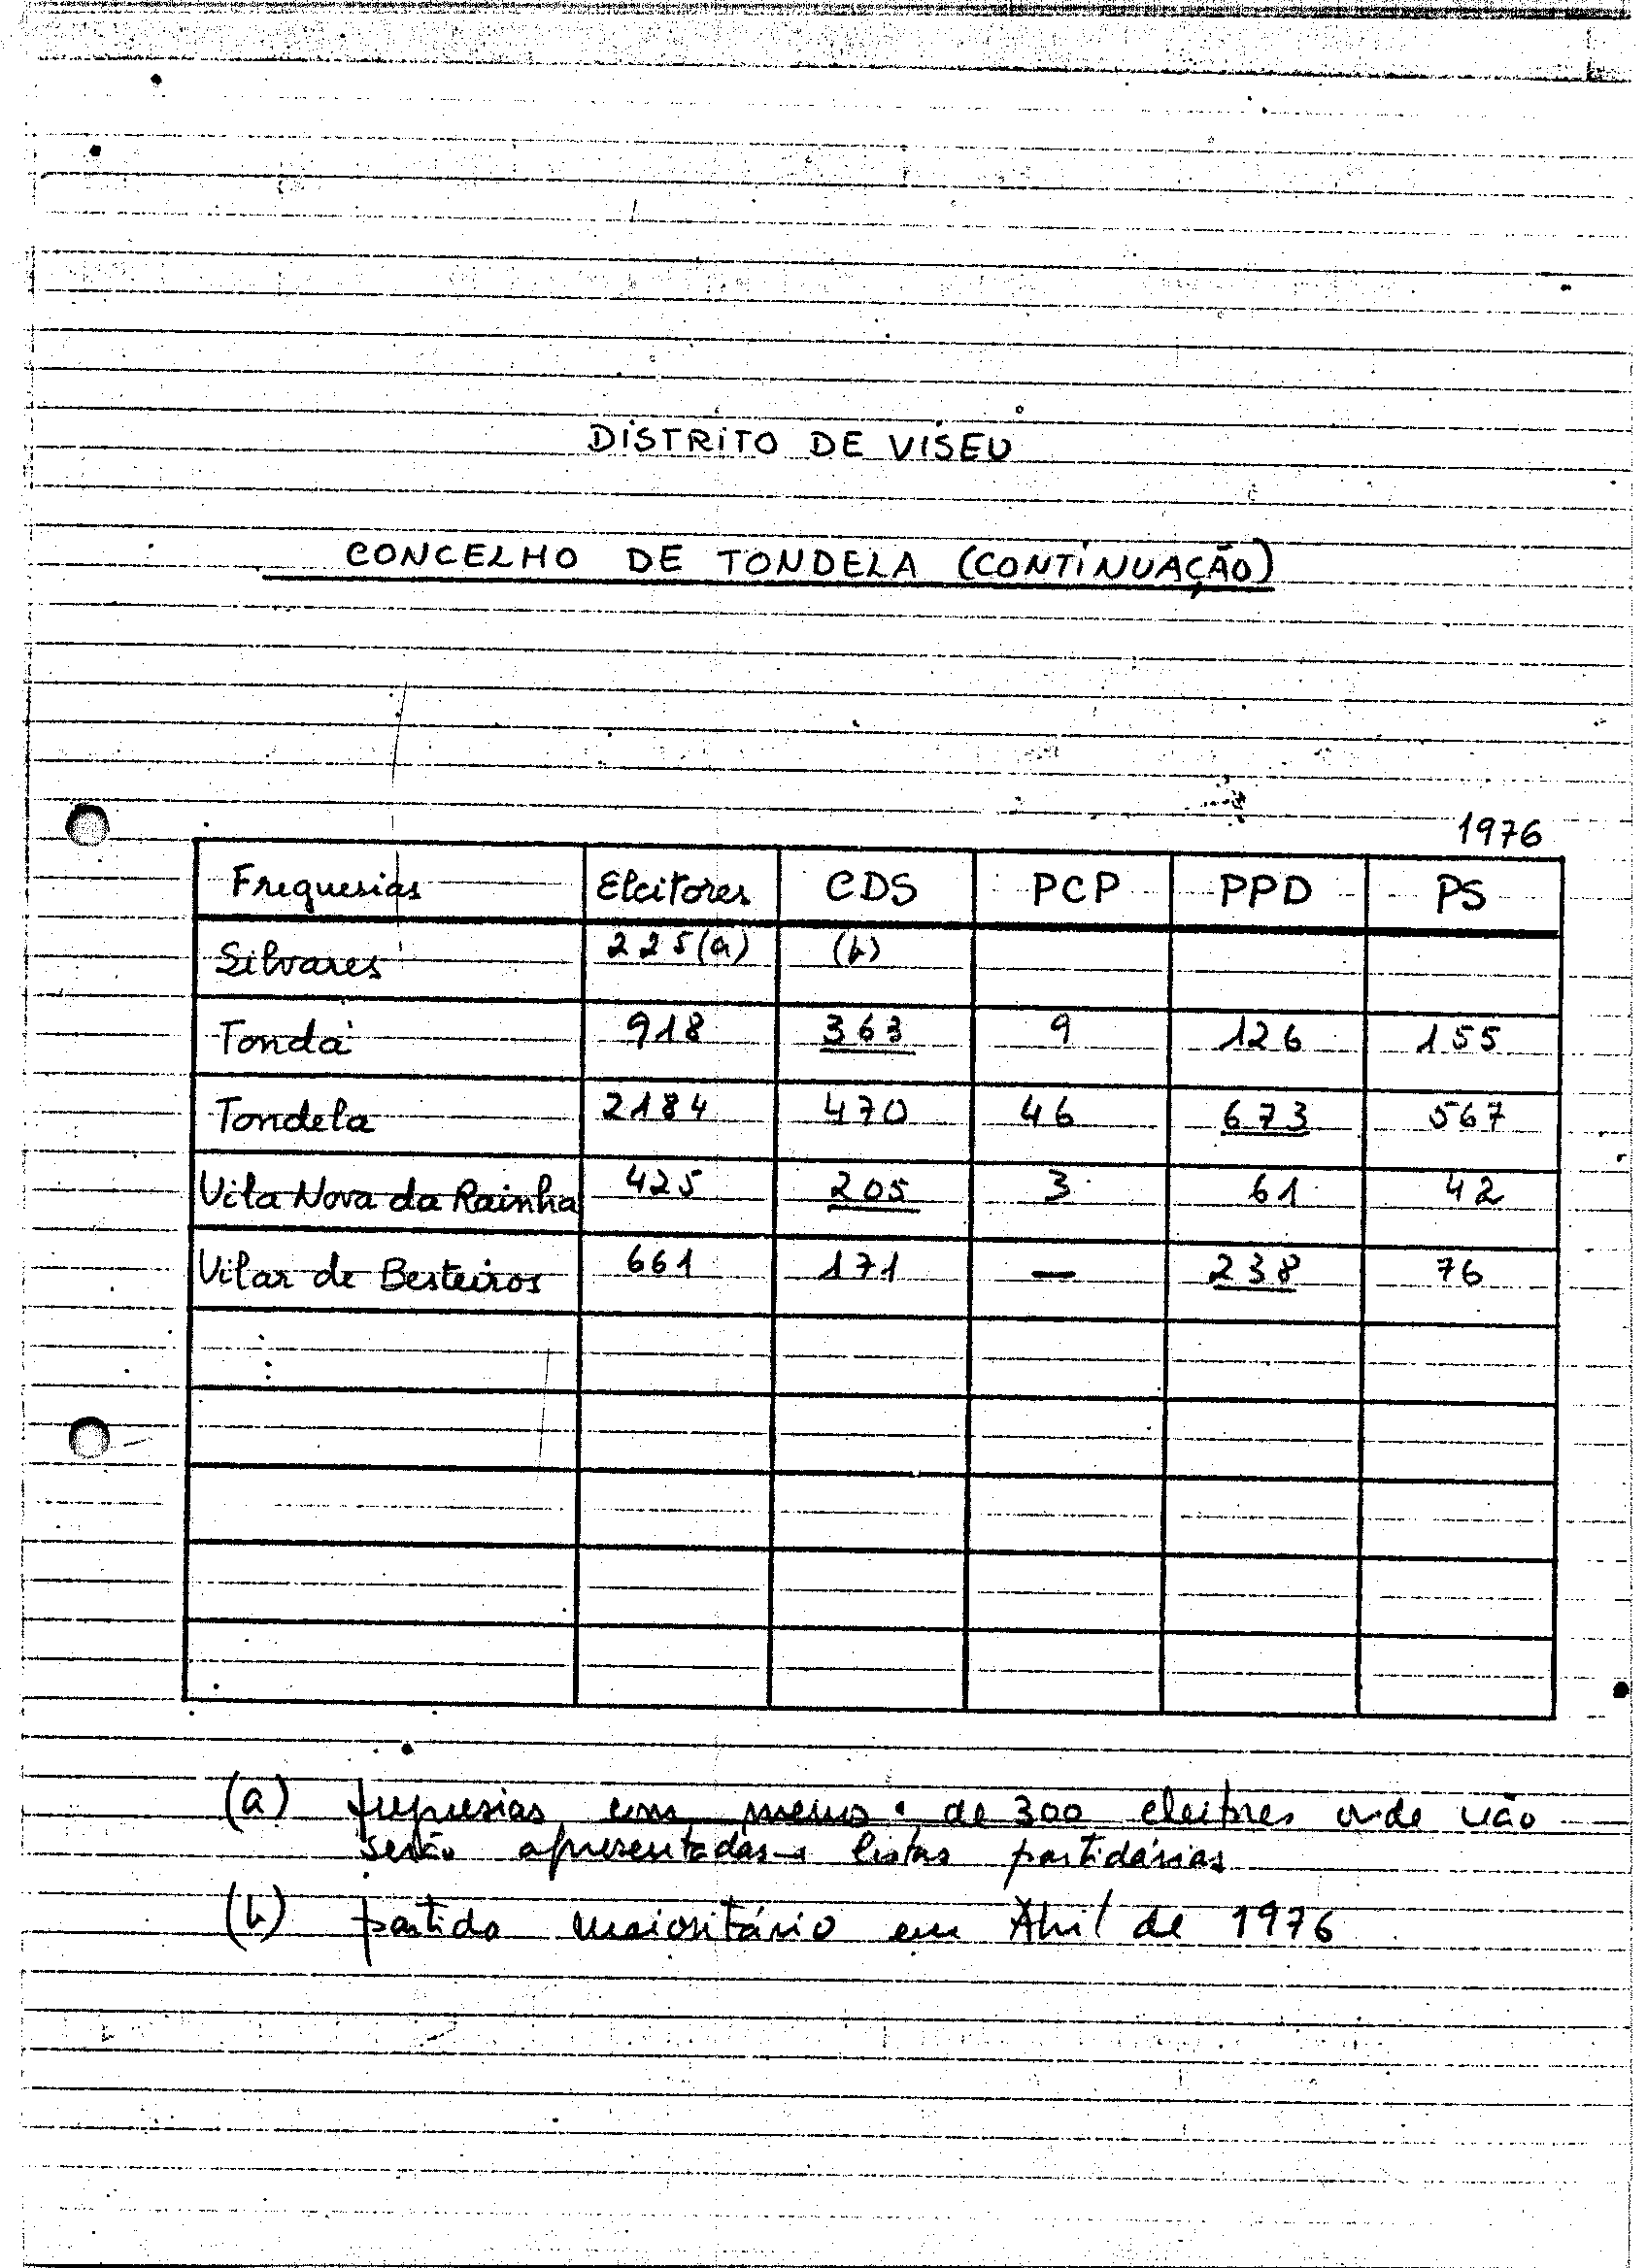 DISTRITO DE VISEU
CONCELHO DE TONDELA (CONTINUAÇÃO)
1976
Freguesias Eleitores CDS PCP PPD PS
Silvares 225(a) (b)
Tonda 918 363 9 126 155
Tondela 2184 470 46 673 567
Vila Nova da Rainha 425 205 3 61 42
Vilar de Besteiros 661 171 — 238 76
(a) freguesias com menos de 300 eleitores onde não
serão apresentadas listas partidárias
(b) partido maioritário em Abril de 1976